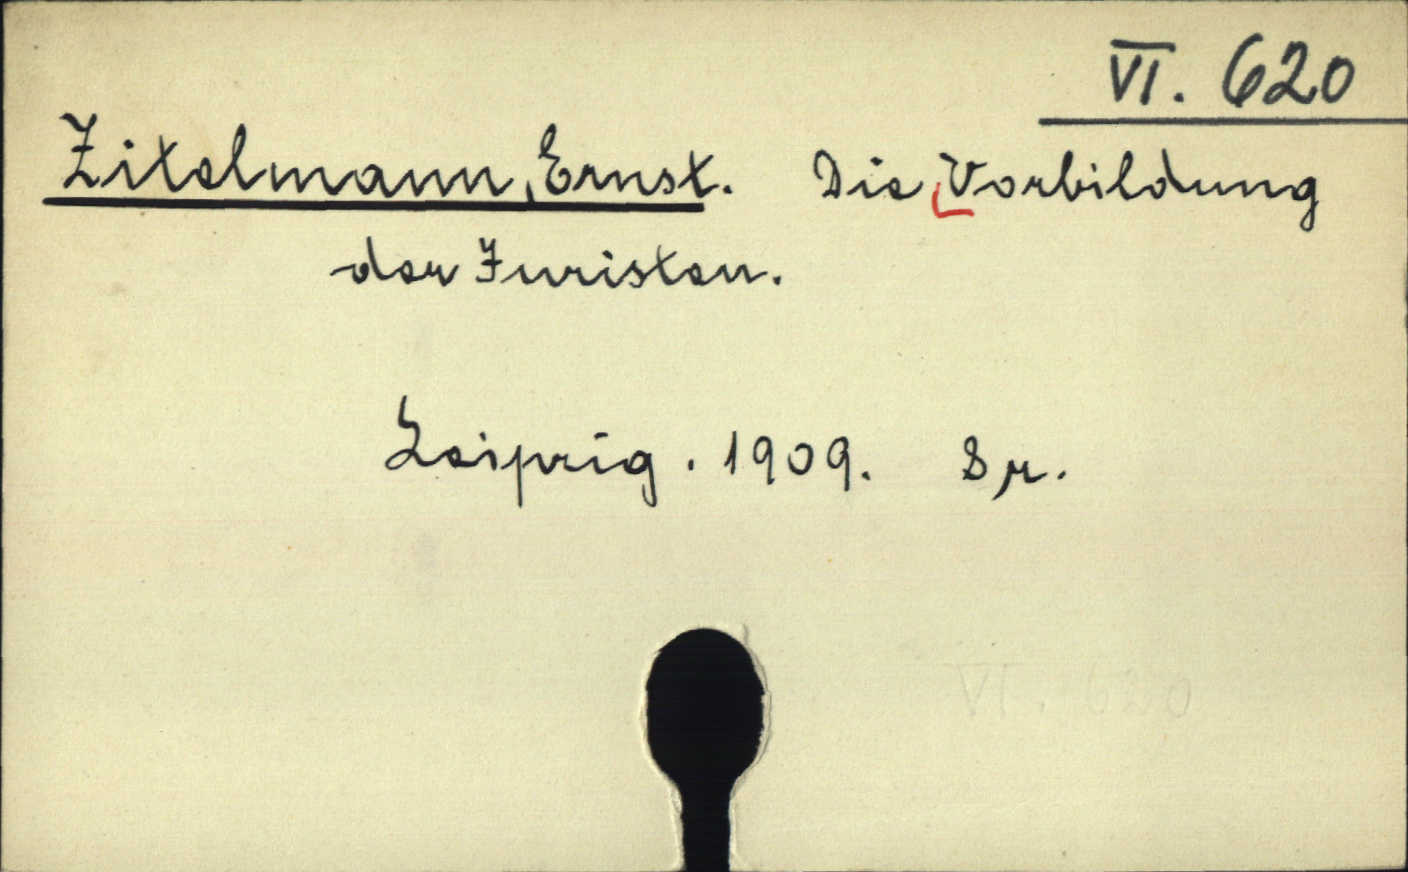 VI. 620
Zitelmann, Ernst. Die Vorbildung
der Juristen.
Leipzig. 1909. 8 r.
VI. 620